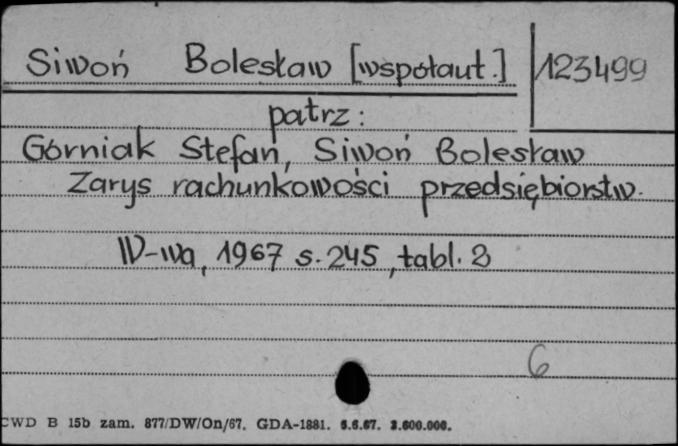 Siwoń Bolesław [współaut.] 123499
patrz:
Górniak Stefan, Siwoń Bolesław
Zarys rachunkowości przedsiębiorstw.
W-wa, 1967 s. 245, tabl. 2
6
CWD B 15b zam. 877/DW/On/67. GDA-1881. 6.6.67. 3.600.000.